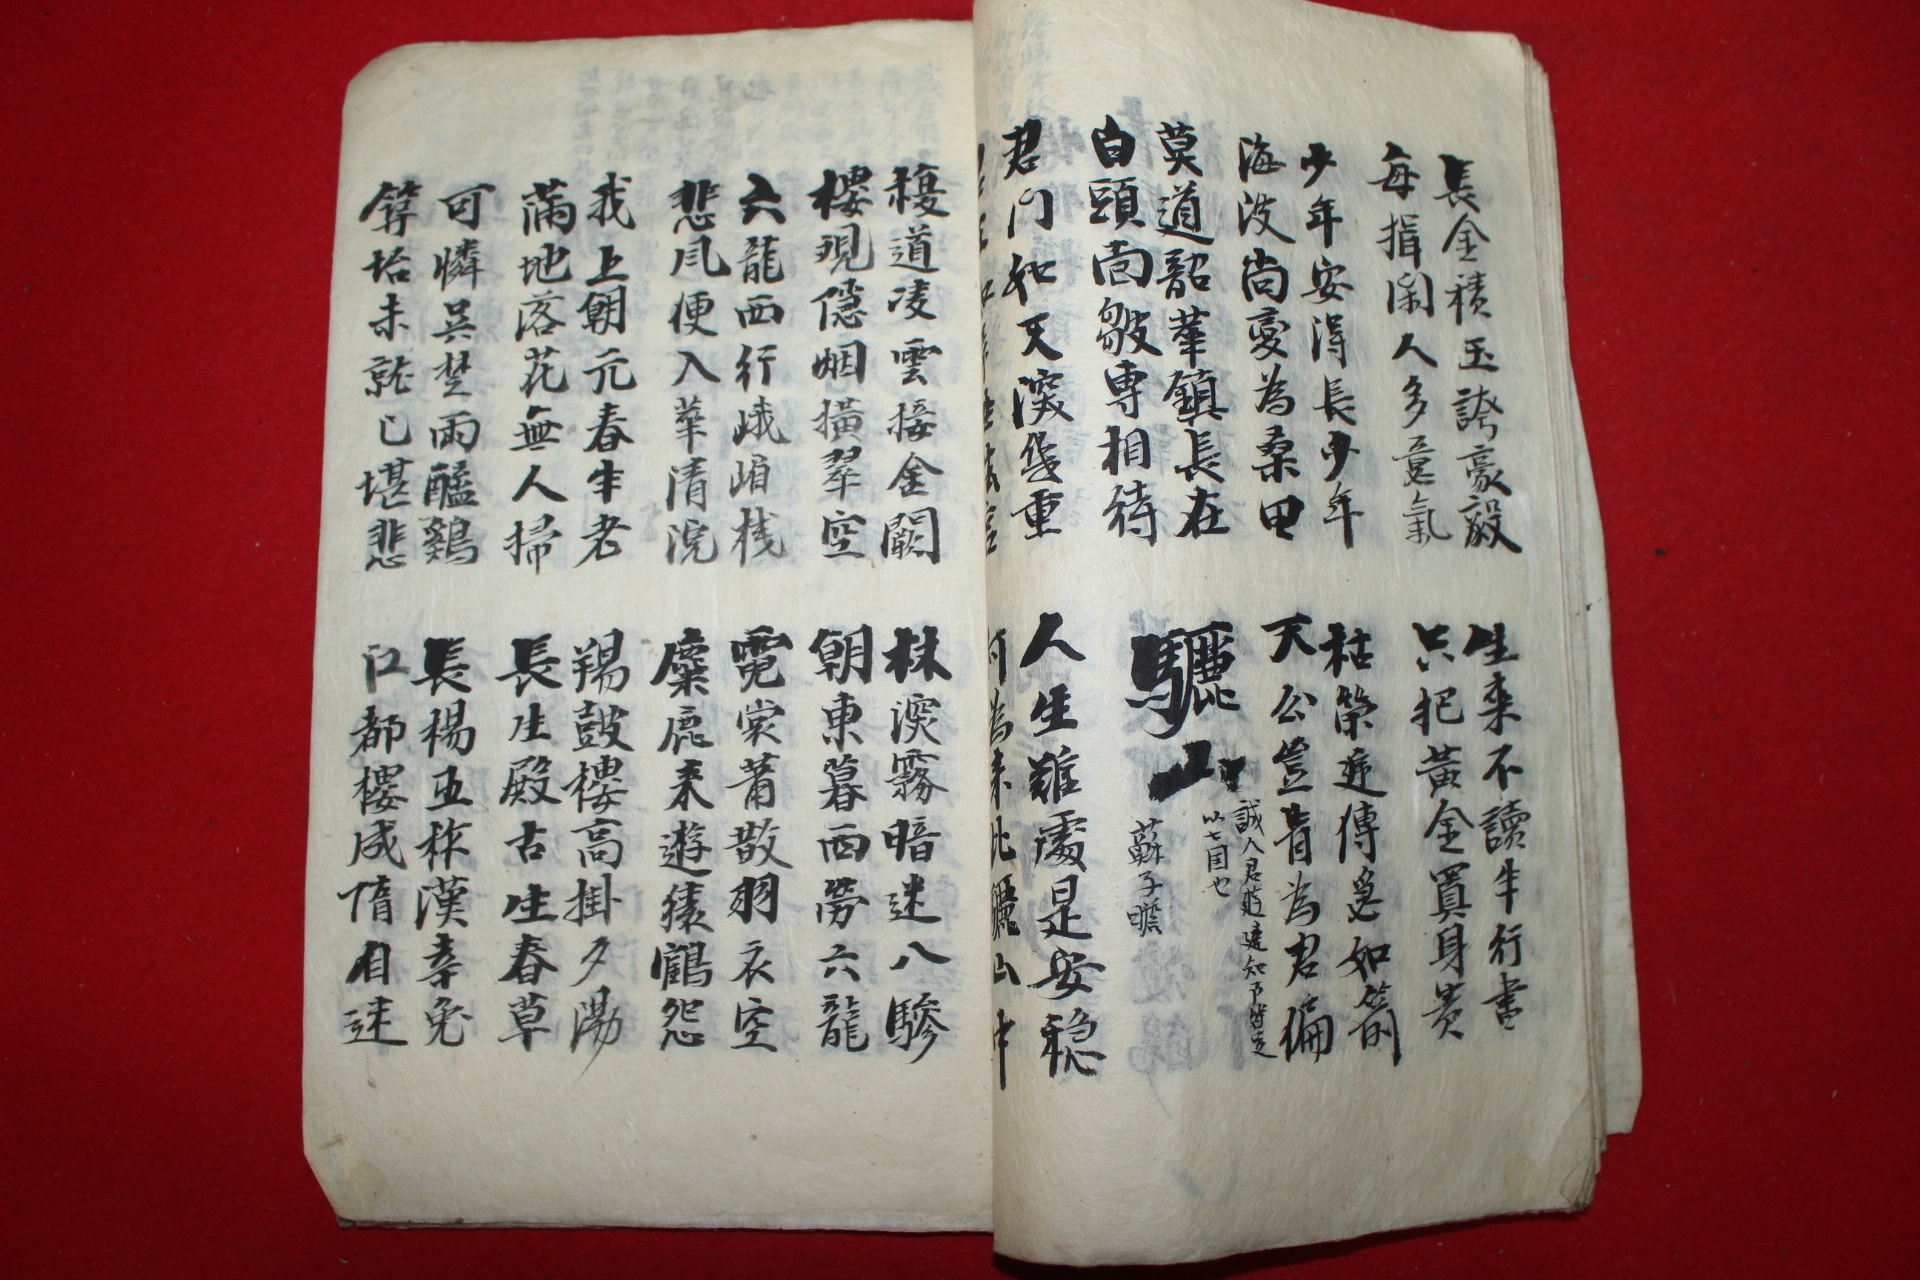 長金積玉誇豪毅
每揖閑人多意氣
生來不讀半行書
只把黃金買身貴
少年安得長少年
海波尚變為桑田
枯榮遞傳急如箭
天公豈肯為君偏
莫道韶華鎮長在
白頭面皺専相待
驪山
蘇子瞻
君門如天深幾重
君王如帝坐法宮
人生難處是安穩
何為来此驪山中
複道凌雲接金闕
樓現隱烟橫翠空
林深霧暗迷八驂
朝東暮西勞六龍
六龍西行峨嵋棧
悲風便入華清院
霓裳蕭散羽衣空
麋鹿来遊猿鶴怨
我上朝元春半老
滿地落花無人掃
羯鼓樓高掛夕陽
長生殿古生春草
可憐吳楚兩醯鷄
築坮未就已堪悲
長楊五柞漢幸免
江都樓成隋自迷